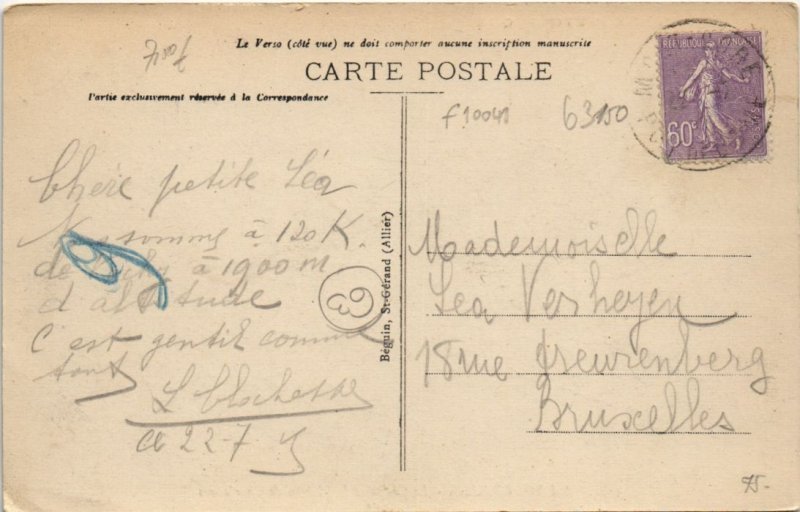 Le Verso (côté vue) ne doit comporter aucune inscription manuscrite
CARTE POSTALE
Partie exclusivement réservée à la Correspondance
RÉPUBLIQUE FRANÇAISE
60c
f10048
63150
Chère petite Léa
Ns sommes à 120 K.
de à 1900 m
d altitude
C est gentil comme
tout
22-7
63
Béguin, St-Gérand (Allier)
Mademoiselle
Léa Verheyen
18 rue
Bruxelles
75-